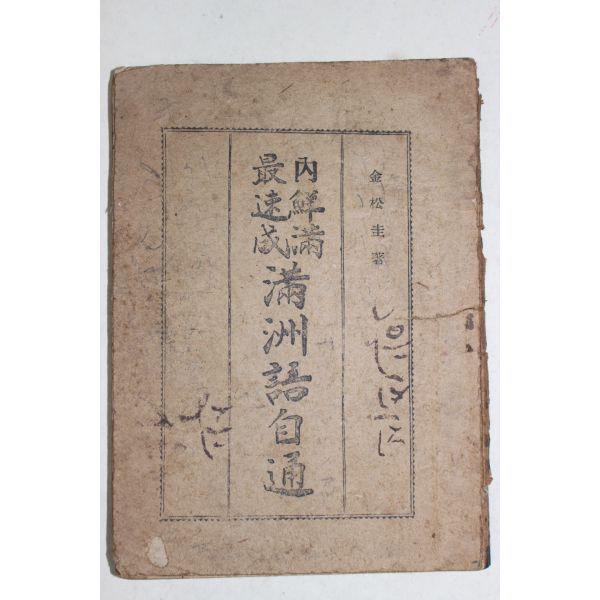 金松圭著
內鮮滿
最速成
滿洲語自通